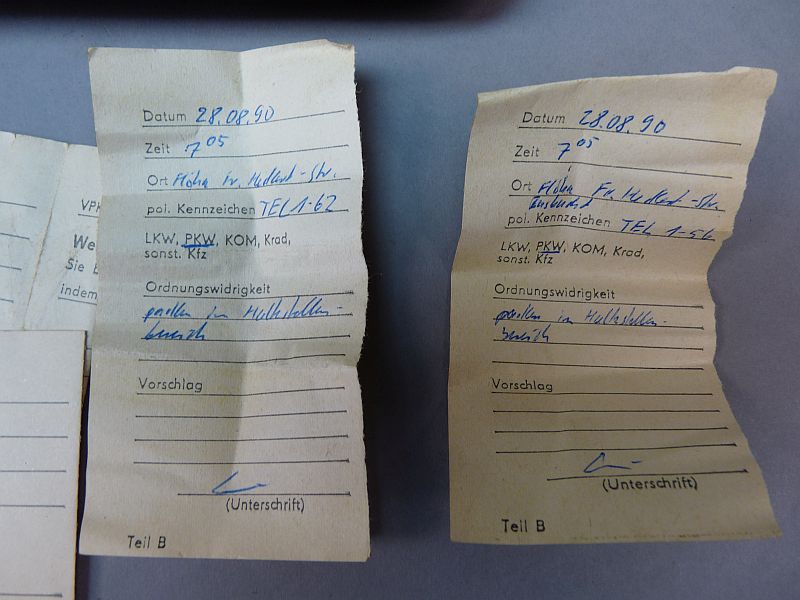 VPK
We
Sie b
indem
Datum 28.08.90
Zeit 7 05
Ort Flöha Fr. -Str.
pol. Kennzeichen TEL 1-62
LKW, PKW, KOM, Krad,
sonst. Kfz
Ordnungswidrigkeit
parken im Haltestellen-
bereich
Vorschlag
(Unterschrift)
Teil B
Datum 28.08.90
Zeit 7 05
Ort Flöha Fr. -Str.
pol. Kennzeichen TEL 1-56
LKW, PKW, KOM, Krad,
sonst. Kfz
Ordnungswidrigkeit
parken im Haltestellen-
bereich
Vorschlag
(Unterschrift)
Teil B